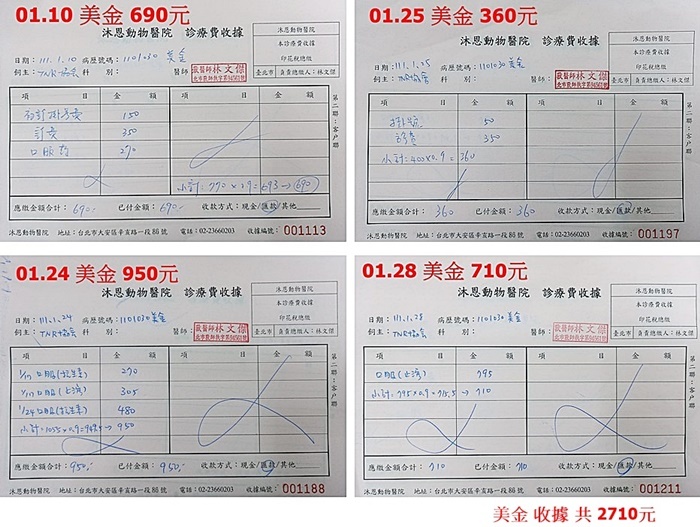 01.10 美金 690元
沐恩動物醫院 診療費收據
沐恩動物醫院
本診療費收據
印花稅總繳
臺北市 負責總繳人:林文傑
日期: 111.1.10 病歷號碼: 1101030 美金
飼主: TNR協會 科 別: 醫師: 獸醫師林文傑
項 目 金 額 項 目 金 額
初診掛號費 150
診費 350
口服藥 270
小計: 770×0.9=693→690
應繳金額合計: 690.- 已付金額: 690.- 收款方式:現金/匯款/其他
第二聯:客戶聯
沐恩動物醫院 地址:台北市大安區辛亥路一段86號 電話:02-23660203 收據編號: 001113
01.25 美金 360元
沐恩動物醫院 診療費收據
沐恩動物醫院
本診療費收據
印花稅總繳
臺北市 負責總繳人:林文傑
日期: 111.1.25 病歷號碼: 1101030 美金
飼主: TNR協會 科 別: 醫師: 獸醫師林文傑
項 目 金 額 項 目 金 額
掛號 50
診費 350
小計: 400×0.9= 360
應繳金額合計: 360 已付金額: 360 收款方式:現金/匯款/其他
第二聯:客戶聯
沐恩動物醫院 地址:台北市大安區辛亥路一段86號 電話:02-23660203 收據編號: 001197
01.24 美金 950元
沐恩動物醫院 診療費收據
沐恩動物醫院
本診療費收據
印花稅總繳
臺北市 負責總繳人:林文傑
日期: 111.1.24 病歷號碼: 1101030 美金
飼主: TNR協會 科 別: 醫師: 獸醫師林文傑
項 目 金 額 項 目 金 額
1/17 口服(抗生素) 270
口服 305
1/24 口服(抗生素) 480
小計: 1055×0.9= 950
應繳金額合計: 950.- 已付金額: 950.- 收款方式:現金/匯款/其他
第二聯:客戶聯
沐恩動物醫院 地址:台北市大安區辛亥路一段86號 電話:02-23660203 收據編號: 001188
01.28 美金 710元
沐恩動物醫院 診療費收據
沐恩動物醫院
本診療費收據
印花稅總繳
臺北市 負責總繳人:林文傑
日期: 111.1.28 病歷號碼: 1101030 美金
飼主: TNR協會 科 別: 醫師: 獸醫師林文傑
項 目 金 額 項 目 金 額
口服 795
小計: 795×0.9=715.5→710
應繳金額合計: 710 已付金額: 710 收款方式:現金/匯款/其他
第二聯:客戶聯
沐恩動物醫院 地址:台北市大安區辛亥路一段86號 電話:02-23660203 收據編號: 001211
美金 收據 共 2710元